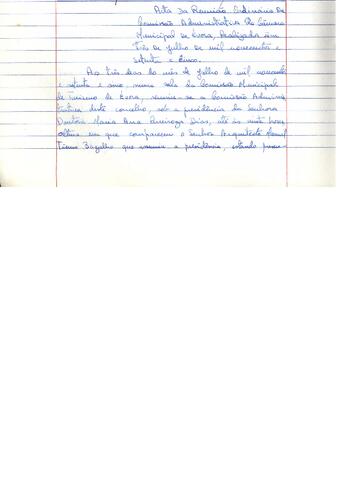 Acta da Reunião Ordinária da
Comissão Administrativa da Câmara
Municipal de Évora, Realizada em
três de Julho de mil novecentos e
setenta e cinco.
Aos três dias do mês de Julho de mil novecentos
e setenta e cinco, numa sala da Comissão Municipal
de Turismo de Évora, reuniu-se a Comissão Adminis
trativa deste concelho, sob a presidência da Senhora
Doutora Maria Ana Dias, até às vinte horas
altura em que compareceu o Senhor Arquitecto
Bagulho que assumiu a presidência, estando presen-